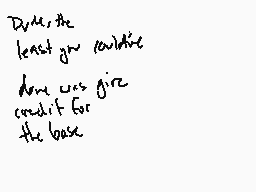 Dude, the
least you could've
done was give
credit for
the base